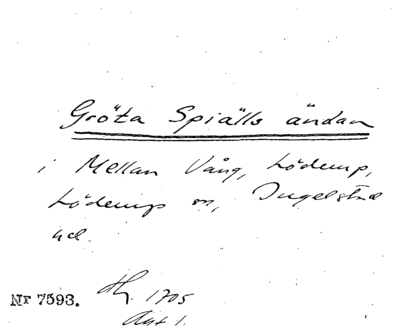 Gröta Spiälls ändan
i Mellan Vång, Löderup,
Löderup sn, Ingelstad
hd.
Nr 7593. 1705
Akt 1.